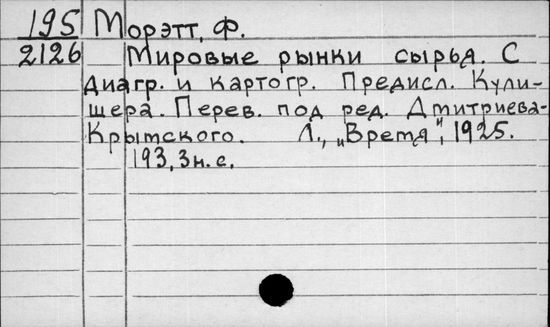 195 Морэтт, Ф.
2126 Мировые рынки сырья. С
диагр. и картогр. Предисл. Кули-
шера. Перев. под ред. Дмитриева-
Крытского. Л., „Время", 1925.
193, 3 н. с.